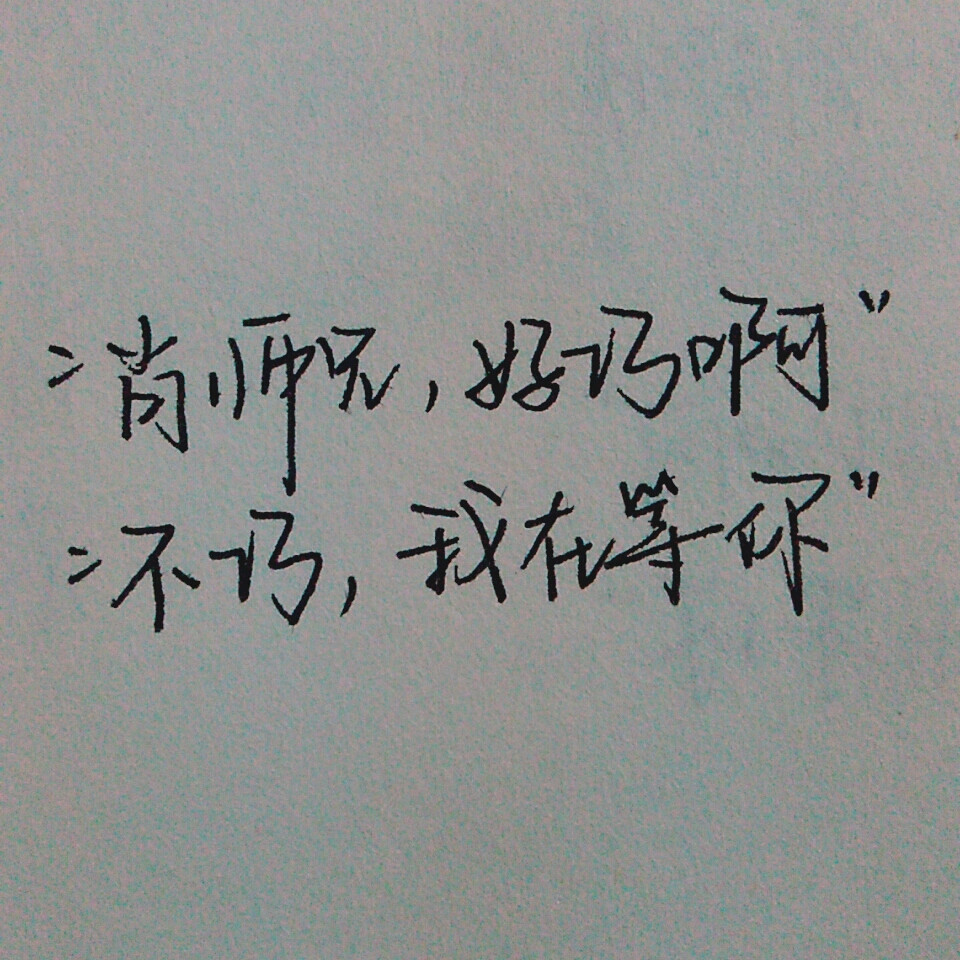 “肖师兄,好巧啊”
“不巧,我在等你”